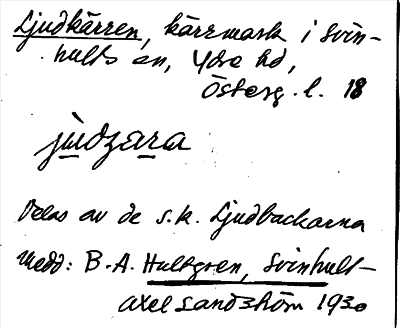 Ljudkärren, kärrmark i Svin-
hults sn, Ydre hd,
Österg. l. 18
jùdzara
Delas av de s.k. Ljudbackarna
Medd: B.A. Hultgren, Svinhult—
Axel Sandström 1930